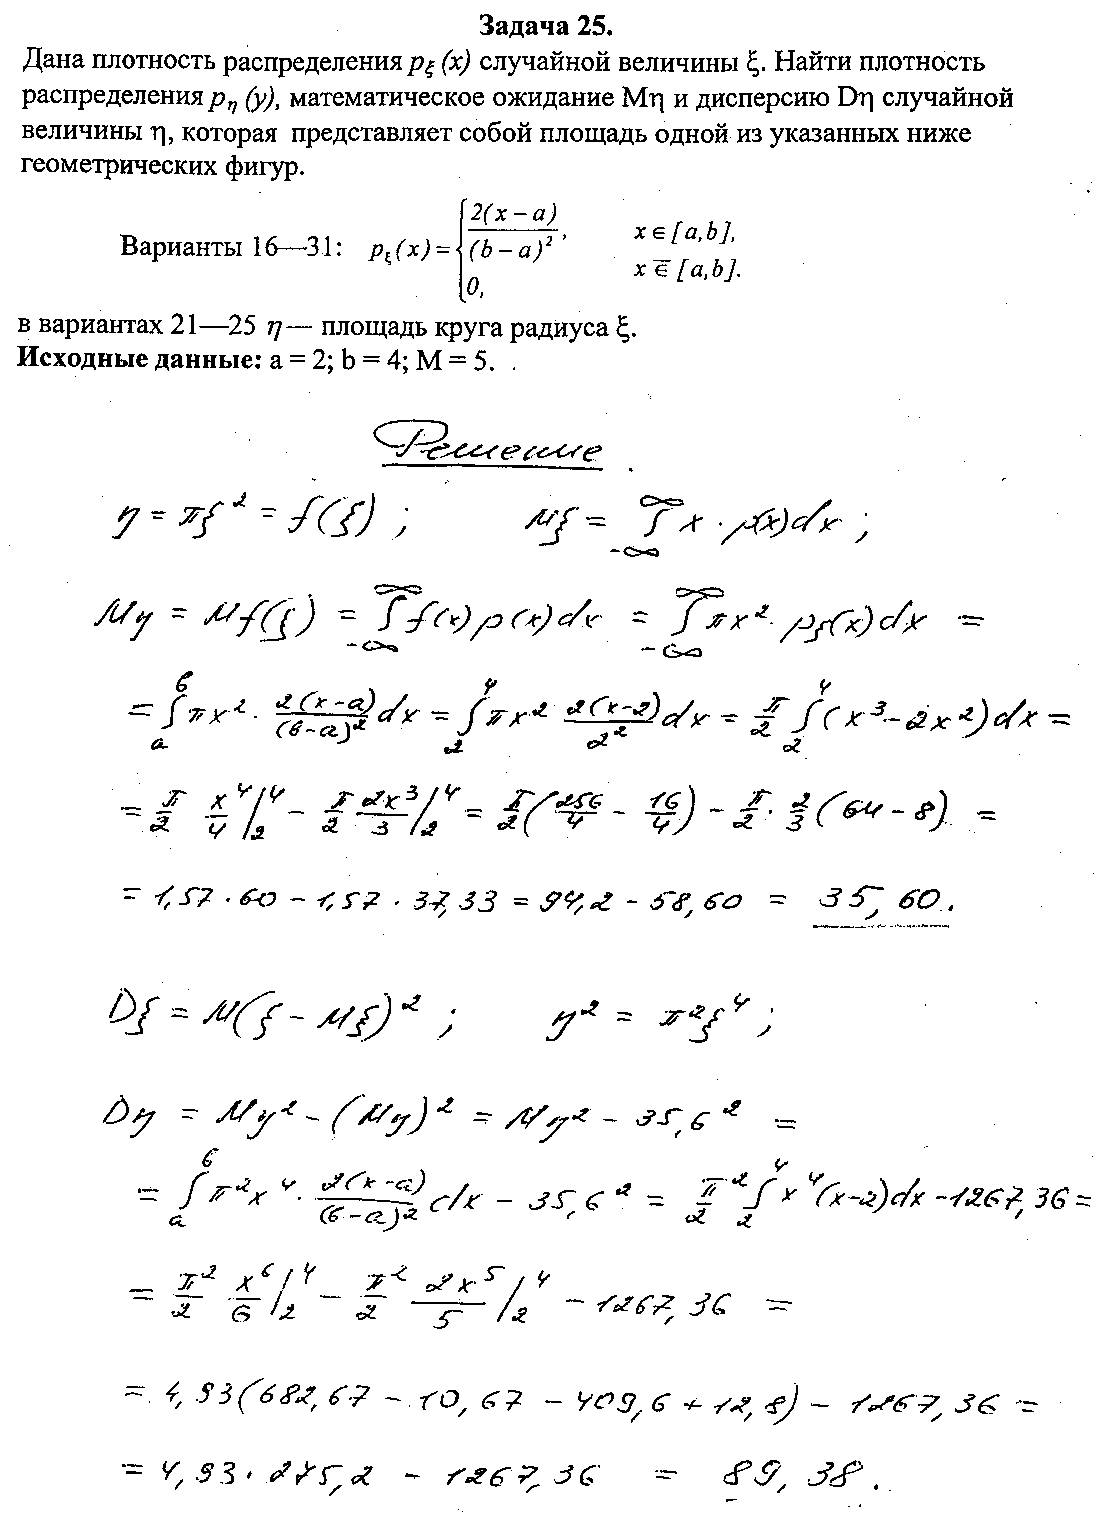 Задача 25.
Дана плотность распределения p_ξ (x) случайной величины ξ. Найти плотность
распределения p_η (y), математическое ожидание Mη и дисперсию Dη случайной
величины η, которая представляет собой площадь одной из указанных ниже
геометрических фигур.
Варианты 16—31: p_ξ(x) = { 2(x − a)/(b − a)², x ∈ [a,b],
0, x ∉ [a,b].
в вариантах 21—25 η — площадь круга радиуса ξ.
Исходные данные: a = 2; b = 4; M = 5.
Решение
η = πξ² = f(ξ) ; Mξ = ∫_{-∞}^{∞} x · p(x)dx ;
Mη = Mf(ξ) = ∫_{-∞}^{∞} f(x) p(x)dx = ∫_{-∞}^{∞} πx² · p_ξ(x)dx =
= ∫_a^b πx² · 2(x-a)/(b-a)² dx = ∫_2^4 πx² 2(x-2)/2² dx = π/2 ∫_2^4 (x³ - 2x²)dx =
= π/2 x⁴/4 |_2^4 - π/2 2x³/3 |_2^4 = π/2 (256/4 - 16/4) - π/2 · 2/3 (64 - 8) =
= 1,57 · 60 - 1,57 · 37,33 = 94,2 - 58,60 = 35,60.
Dξ = M(ξ - Mξ)² ; η² = π²ξ⁴ ;
Dη = Mη² - (Mη)² = Mη² - 35,6² =
= ∫_a^b π²x⁴ · 2(x-a)/(b-a)² dx - 35,6² = π²/2 ∫_2^4 x⁴(x-2)dx - 1267,36 =
= π²/2 x⁶/6 |_2^4 - π²/2 2x⁵/5 |_2^4 - 1267,36 =
= 4,93(682,67 - 10,67 - 409,6 + 12,8) - 1267,36 =
= 4,93 · 275,2 - 1267,36 = 89,38.